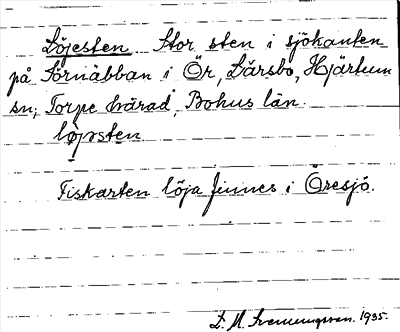 Löjesten Stor sten i sjökanten
på Sörnäbban i Ör, Lärsbo, Hjärtum
sn, Torpe härad, Bohus län.
löjsten
Fiskarten löja finnes i Öresjö.
L. M. Svenungsson. 1935.